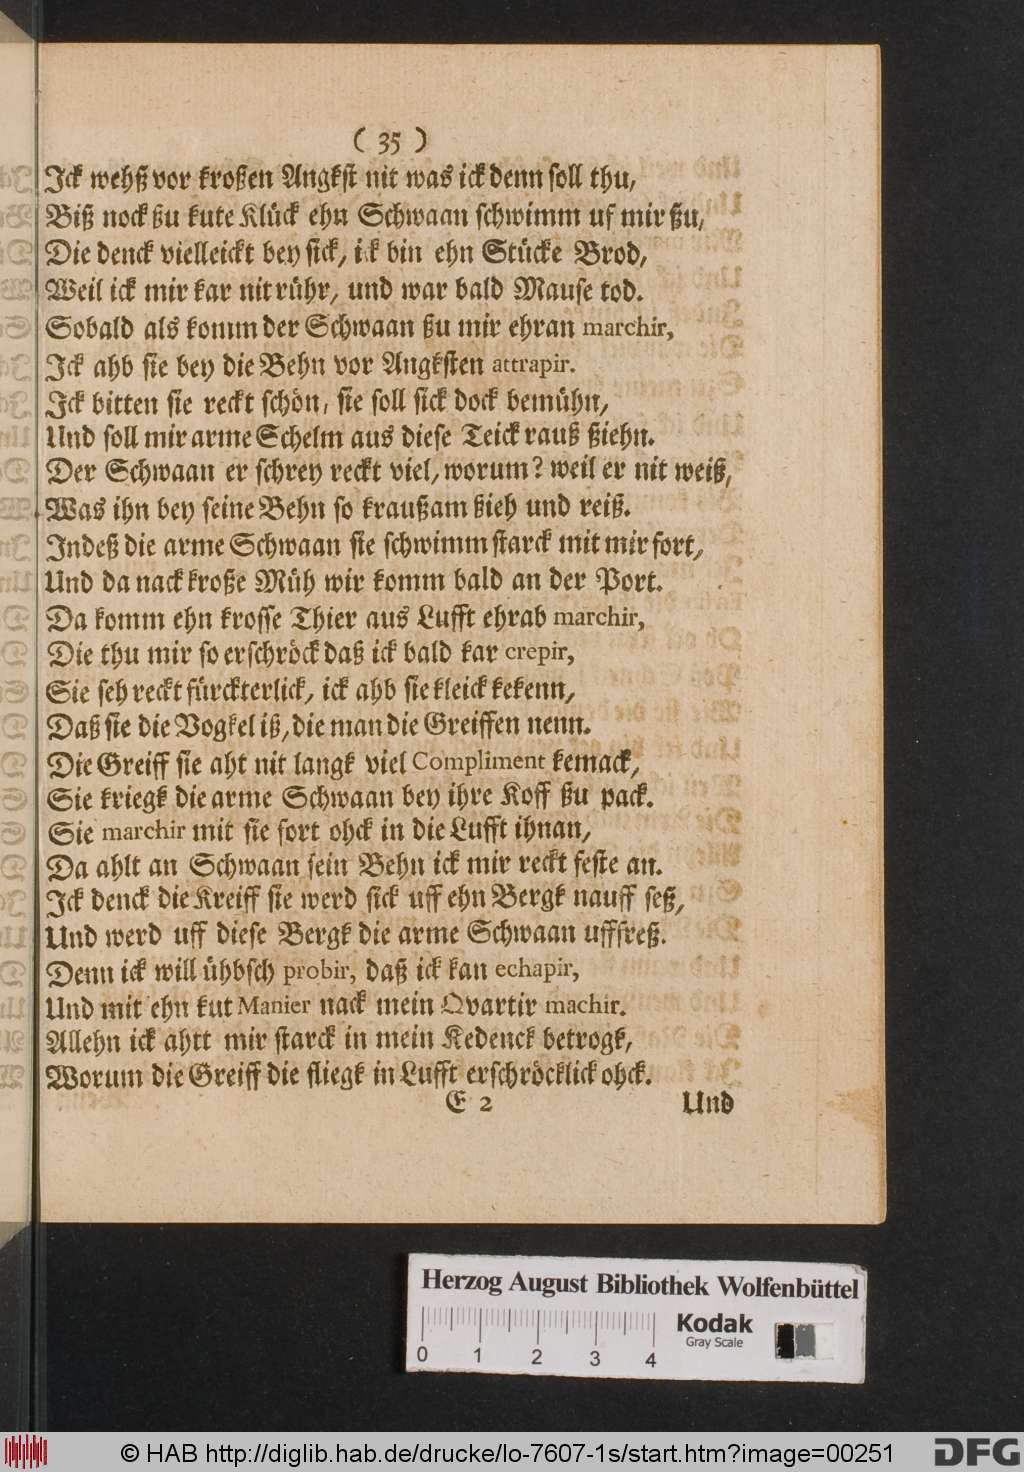 ( 35 )
Ick wehß vor kroßen Angkst nit was ick denn soll thu,
Biß nock ßu kute Klück ehn Schwaan schwimm uf mir ßu,
Die denck vielleickt bey sick, ick bin ehn Stücke Brod,
Weil ick mir kar nit rühr, und war bald Mause tod.
Sobald als komm der Schwaan ßu mir ehran marchir,
Ick ahb sie bey die Behn vor Angksten attrapir.
Ick bitten sie reckt schön, sie soll sick dock bemühn,
Und soll mir arme Schelm aus diese Teick rauß ßiehn.
Der Schwaan er schrey reckt viel, worum? weil er nit weiß,
Was ihn bey seine Behn so kraußam ßieh und reiß.
Indeß die arme Schwaan sie schwimm starck mit mir fort,
Und da nack kroße Müh wir komm bald an der Port.
Da komm ehn krosse Thier aus Lufft ehrab marchir,
Die thu mir so erschröck daß ick bald kar crepir,
Sie seh reckt fürckterlick, ick ahb sie kleick kekenn,
Daß sie die Vogkel iß, die man die Greiffen nenn.
Die Greiff sie aht nit langk viel Compliment kemack,
Sie kriegk die arme Schwaan bey ihre Koff ßu pack.
Sie marchir mit sie fort ohck in die Lufft ihnan,
Da ahlt an Schwaan sein Behn ick mir reckt feste an.
Ick denck die Kreiff sie werd sick uff ehn Bergk nauff seß,
Und werd uff diese Bergk die arme Schwaan uffreß.
Denn ick will ühbsch probir, daß ick kan echapir,
Und mit ehn kut Manier nack mein Qvartir machir.
Allehn ick ahtt mir starck in mein Kedenck betrogk,
Worum die Greiff die fliegk in Lufft erschröcklick ohck.
E 2
Und
Herzog August Bibliothek Wolfenbüttel
0 1 2 3 4
Kodak
Gray Scale
© HAB http://diglib.hab.de/drucke/lo-7607-1s/start.htm?image=00251
DFG